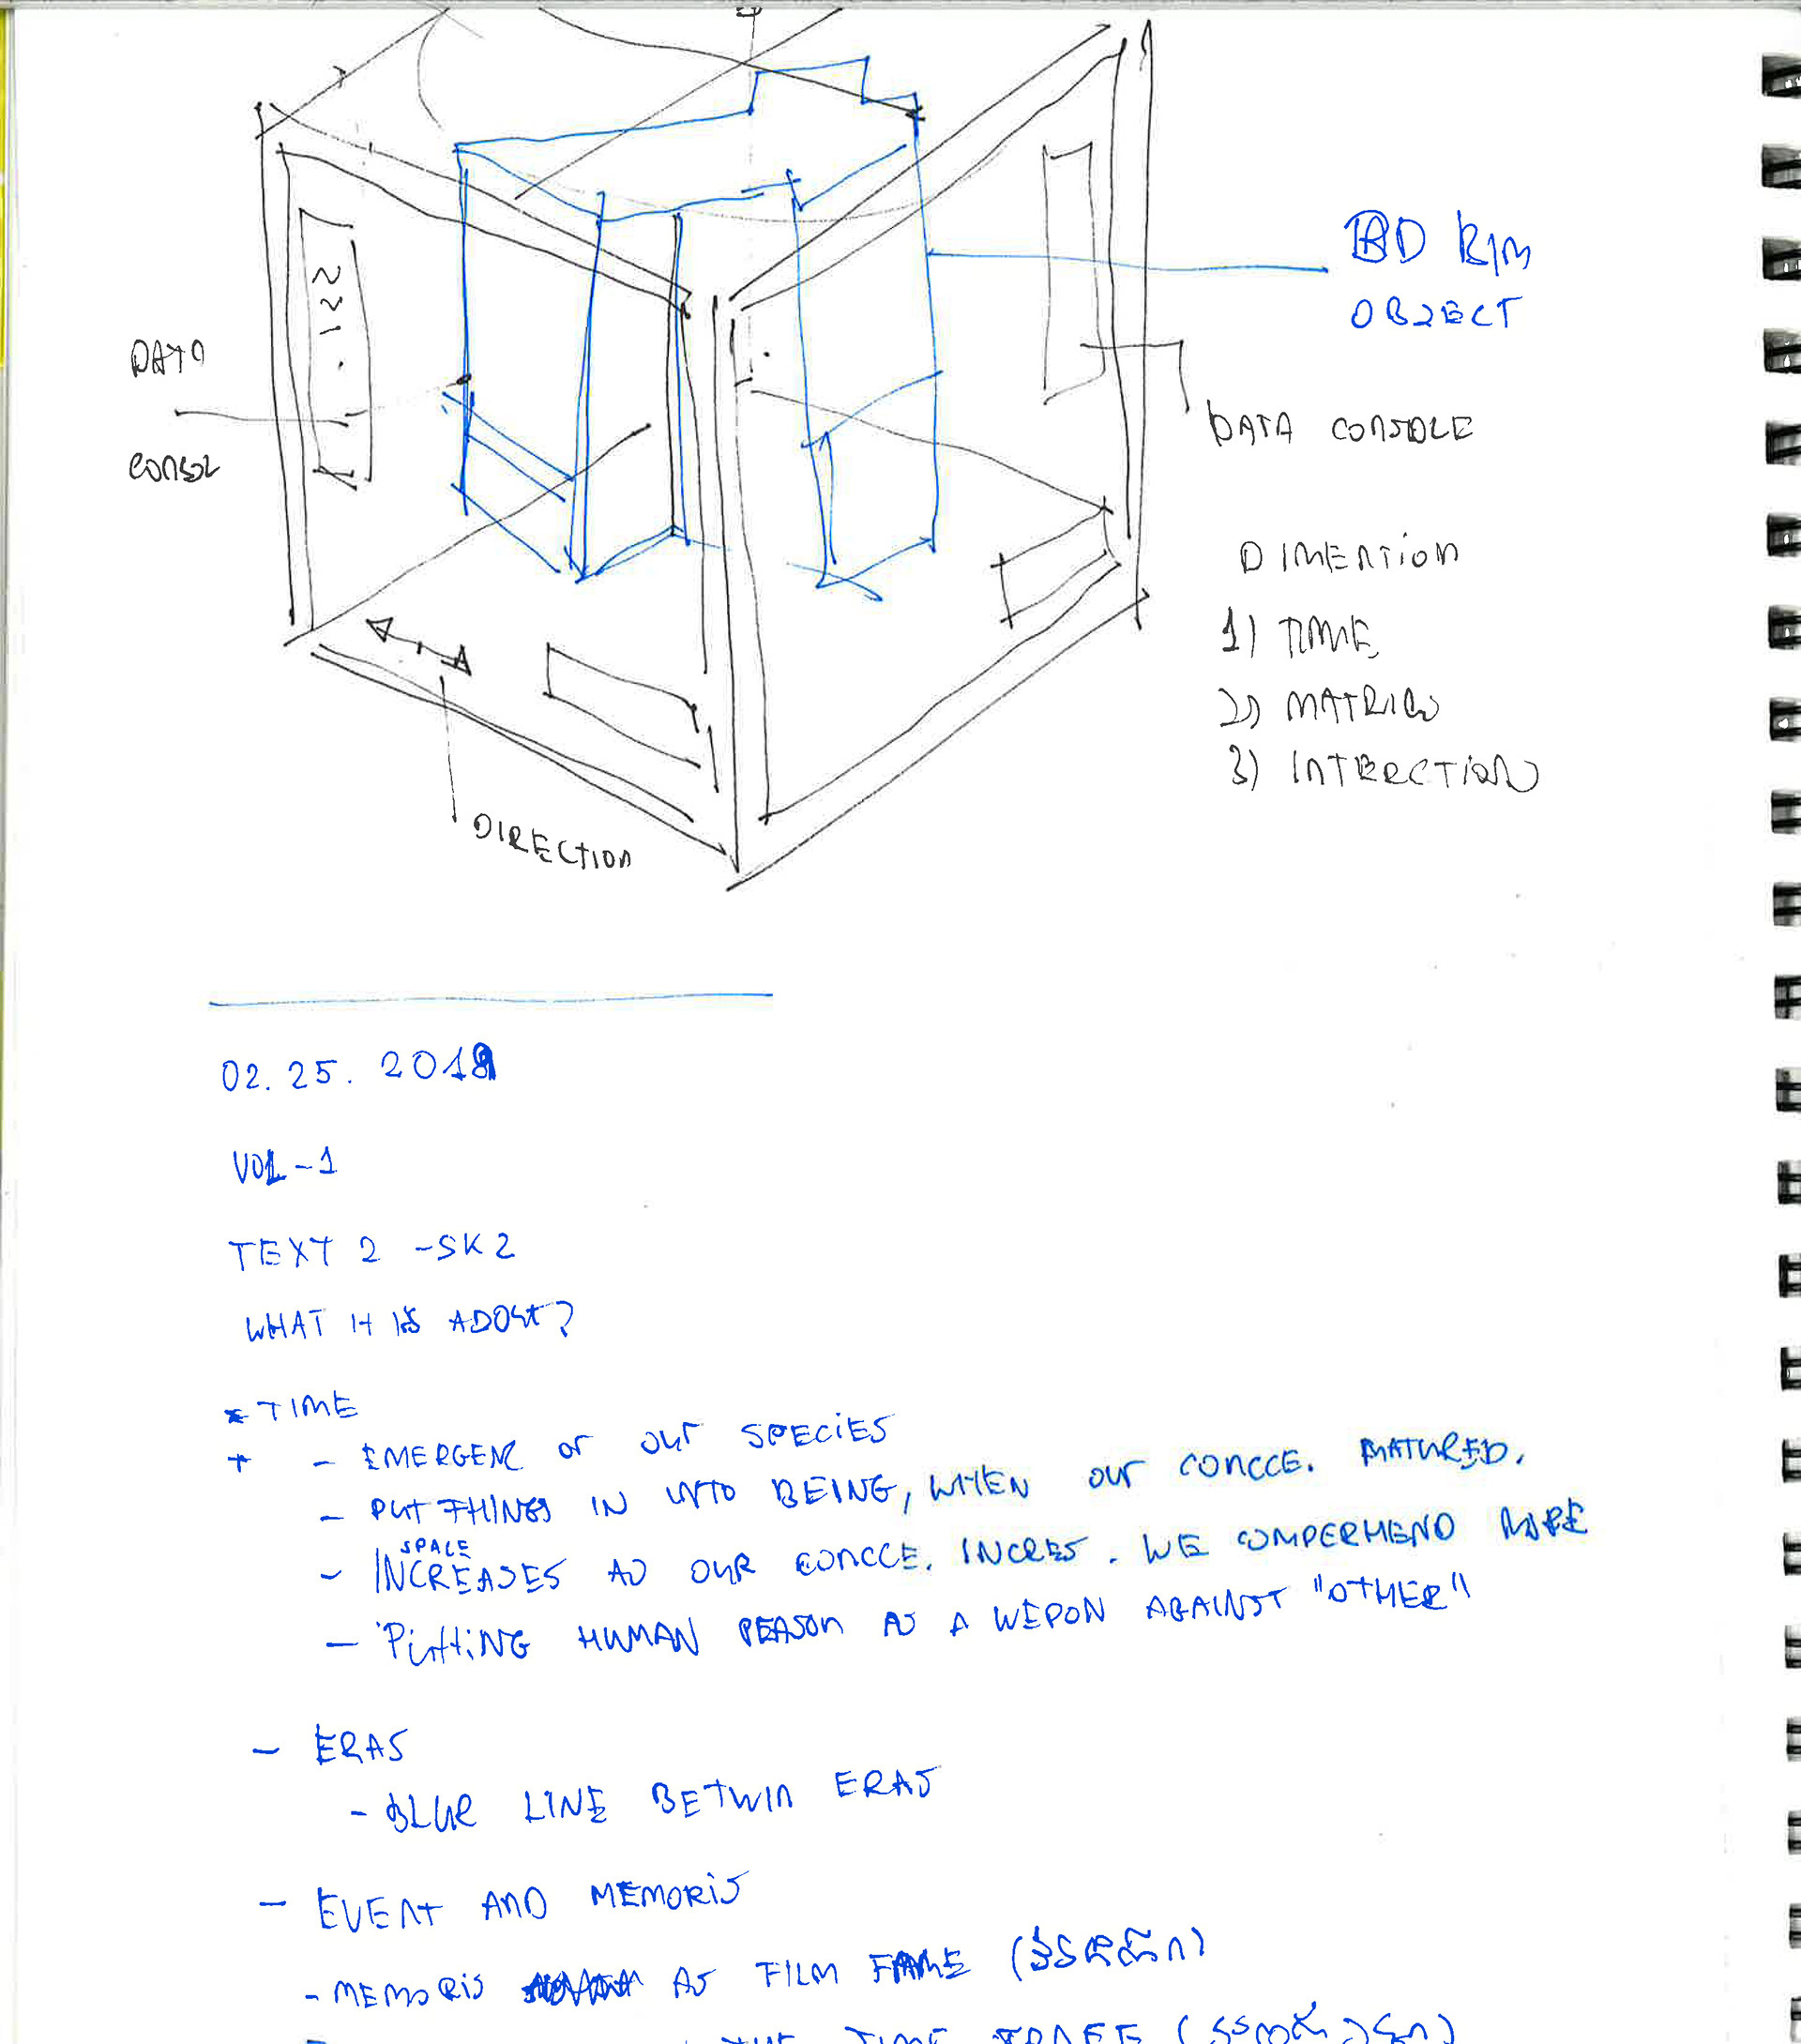 OBJECT
DATA
CONSOL
DATA CONSOLE
DIMENTION
1) TIME
2)
3) INTERECTION
DIRECTION
02. 25. 2018
VOL-1
TEXT 2 -SK2
WHAT It IS ADOUt?
* TIME
+ - EMERGENC OF OUR SPECIES
- PUT THINGS IN UNTO BEING, WHEN OUR CONCCE. MATURED.
SPACE
- INCREASES AS OUR CONCCE. INCRES. WE COMPERHEND MORE
- PUttiNG HUMAN REASON AS A WEPON AGAINST "OTHER"
- ERAS
- BLUR LINE BETWIN ERAS
- EVENT AND MEMORIS
- MEMORIS AS FILM FAME
TIME